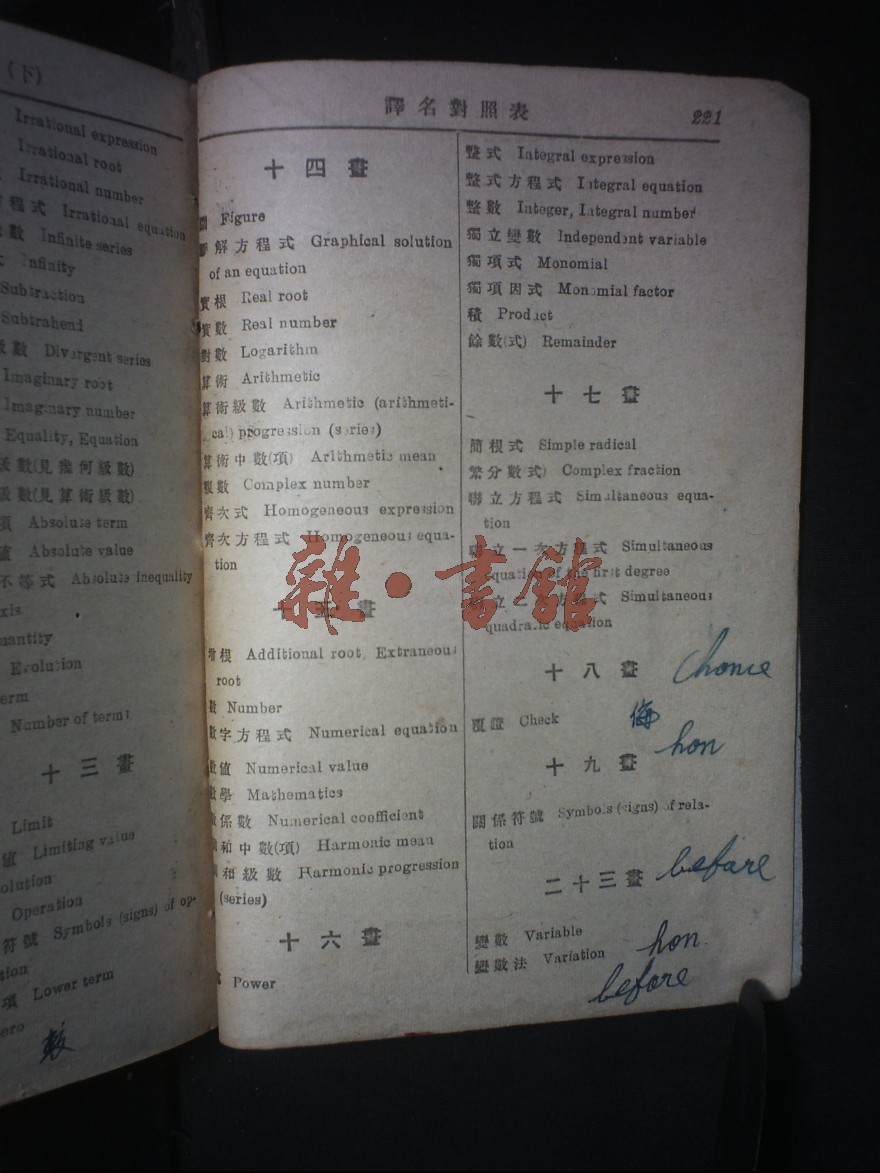 (下)
Irrational expression
Irrational root
Irrational number
程式 Irrational equation
數 Infinite series
Infinity
Subtraction
Subtrahend
數 Divergent series
Imaginary root
Imaginary number
Equality, Equation
級數(見幾何級數)
級數(見算術級數)
項 Absolute term
值 Absolute value
不等式 Absolute inequality
Evolution
Number of terms
十三畫
Limit
值 Limiting value
Operation
符號 Symbols (signs) of op-
項 Lower term
譯名對照表 221
十四畫
圖 Figure
解方程式 Graphical solution
of an equation
實根 Real root
實數 Real number
對數 Logarithm
算術 Arithmetic
算術級數 Arithmetic (arithmeti-
cal) progression (series)
算術中數(項) Arithmetic mean
複數 Complex number
齊次式 Homogeneous expression
齊次方程式 Homogeneous equa-
tion
十五畫
增根 Additional root, Extraneous
root
數 Number
數字方程式 Numerical equation
數值 Numerical value
數學 Mathematics
係數 Numerical coefficient
和中數(項) Harmonic mean
和級數 Harmonic progression
(series)
十六畫
Power
整式 Integral expression
整式方程式 Integral equation
整數 Integer, Integral number
獨立變數 Independent variable
獨項式 Monomial
獨項因式 Monomial factor
積 Product
餘數(式) Remainder
十七畫
簡根式 Simple radical
繁分數(式) Complex fraction
聯立方程式 Simultaneous equa-
tion
聯立一次方程式 Simultaneous
equation of the first degree
聯立二次方程式 Simultaneous
quadratic equation
十八畫
覆證 Check
十九畫
hon
關係符號 Symbols (signs) of rela-
tion
二十三畫
before
變數 Variable
變數法 Variation
hon
before
雜·書館